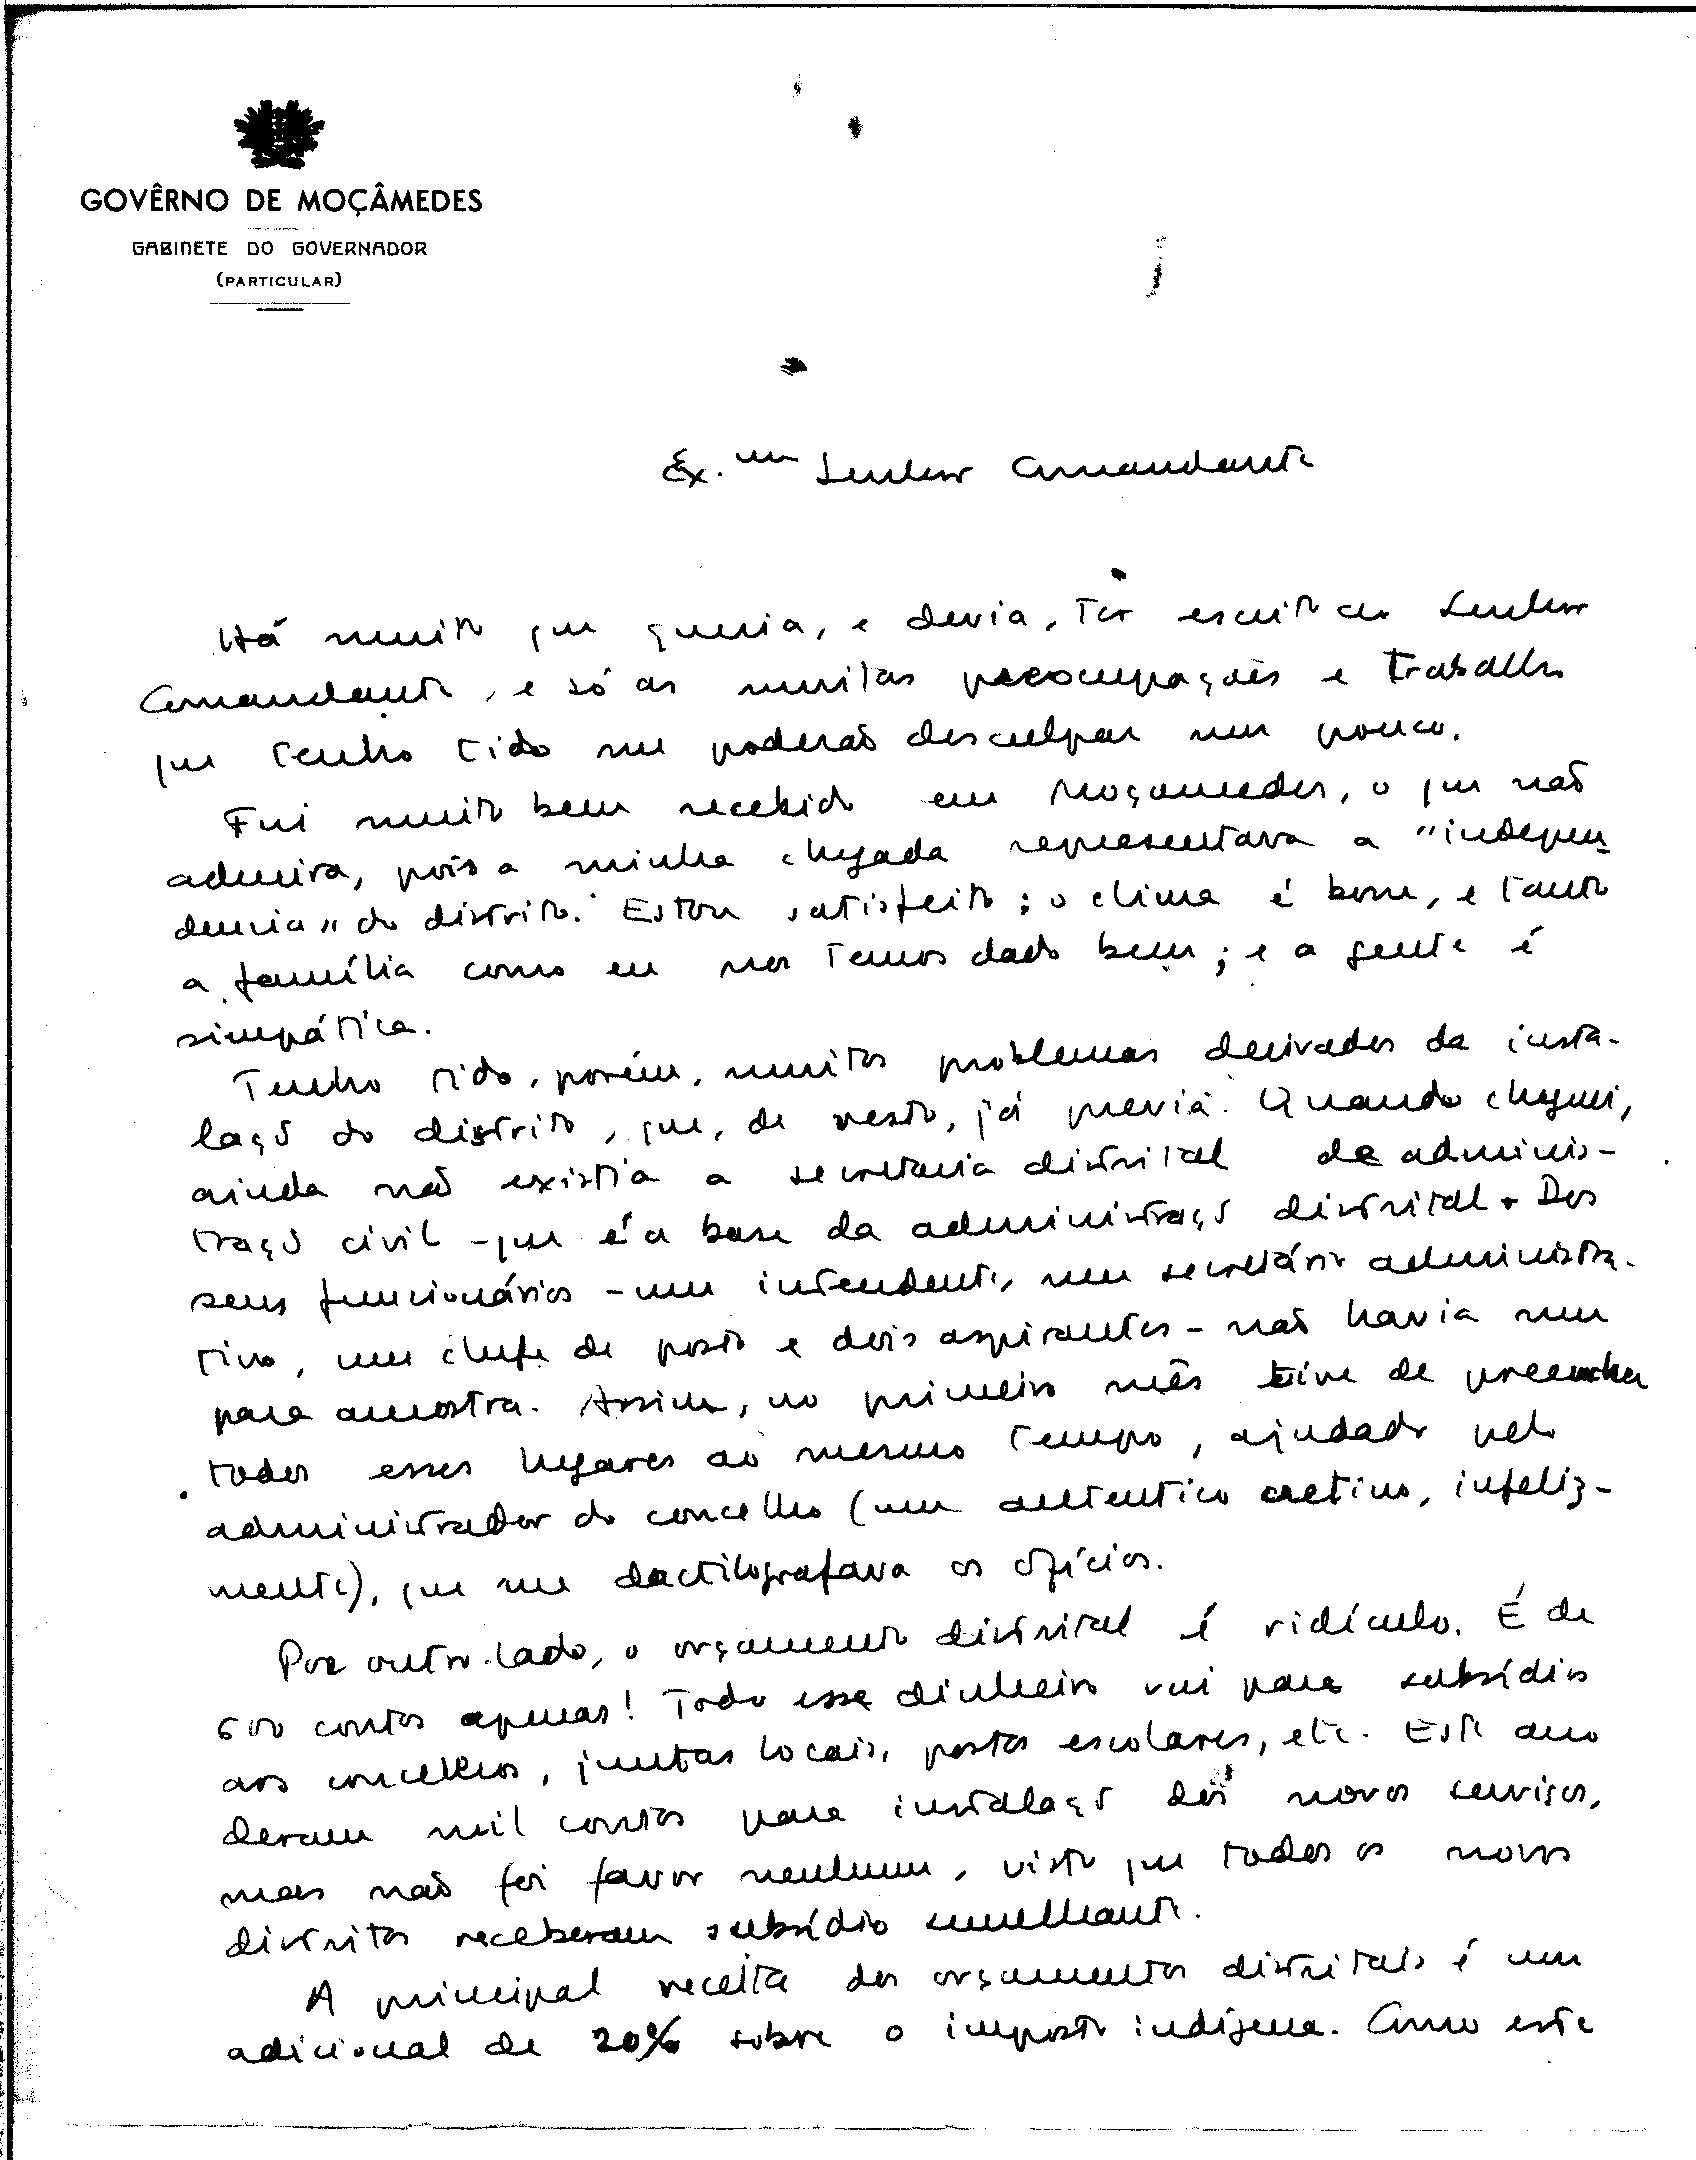 GOVÊRNO DE MOÇÂMEDES
GABINETE DO GOVERNADOR
(PARTICULAR)
Ex.mo Senhor Comandante
Há muito que queria, e devia, ter escrito ao Senhor
Comandante, e só as muitas preocupações e trabalho
que tenho tido me poderão desculpar um pouco.
Fui muito bem recebido em Moçamedes, o que não
admira, pois a minha chegada representava a "indepen-
dencia" do distrito. Estou satisfeito; o clima é bom, e tanto
a família como eu nos temos dado bem; e a gente é
simpática.
Tenho tido, porém, muitos problemas derivados da insta-
lação do distrito, que, de resto, já previa. Quando cheguei,
ainda não existia a secretaria distrital de adminis-
tração civil - que é a base da administração distrital. Dos
seus funcionários - um intendente, um secretário administra-
tivo, um chefe de posto e dois aspirantes - não havia um
para amostra. Assim, no primeiro mês tive de preencher
todos esses lugares ao mesmo tempo, ajudado pelo
administrador do concelho (um autentico cretino, infeliz-
mente), que me dactilografava os ofícios.
Por outro lado, o orçamento distrital é ridículo. É de
600 contos apenas! Todo esse dinheiro vai para subsídios
aos concelhos, juntas locais, postos escolares, etc. Este ano
deram mil contos para instalação dos novos serviços,
mas não foi favor nenhum, visto que todos os novos
distritos receberam subsídio semelhante.
A principal receita dos orçamentos distritais é um
adicional de 20% sobre o imposto indígena. Como este